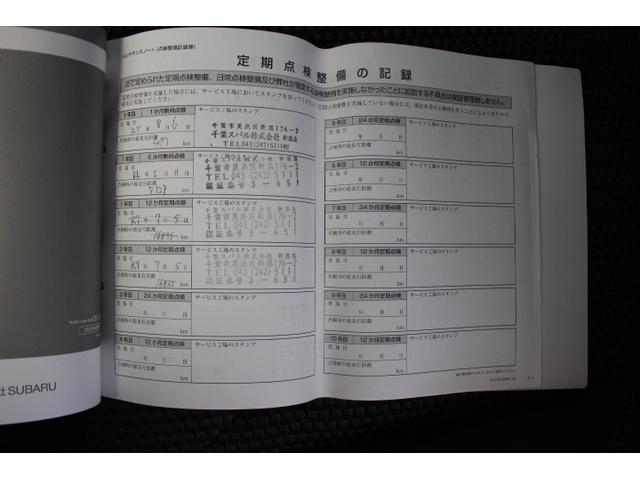 メンテナンスノート(点検整備記録簿)
定期点検整備の記録
法で定められた定期点検整備、日常点検整備及び弊社が指定する点検整備を実施しなかったことに起因する不具合は保証修理致しません。
1年目 1か月無料点検 サービス工場のスタンプ
実施日 8月6日
千葉市美浜区新港176-2
千葉スバル株式会社 新港店
TEL 043(242)5111㈹
点検時の総走行距離
km
1年目 6か月無料点検 サービス工場のスタンプ
実施日
千葉スバル株式会社
千葉市美浜区新港176-2
TEL 043(242)5111
認証番号3-651
点検時の総走行距離
km
1年目 12か月定期点検 サービス工場のスタンプ
実施日 R4年7月5日
千葉スバル株式会社
千葉市美浜区新港176-2
TEL 043(242)5111
認証番号3-651
点検時の総走行距離
16835 km
2年目 12か月定期点検 サービス工場のスタンプ
実施日 R4年7月5日
千葉スバル株式会社
千葉市美浜区新港176-2
TEL 043(242)5111
認証番号3-651
点検時の総走行距離
16835 km
3年目 24か月定期点検 サービス工場のスタンプ
実施日 年 月 日
点検時の総走行距離
km
4年目 12か月定期点検 サービス工場のスタンプ
実施日 年 月 日
点検時の総走行距離
km
5年目 24か月定期点検 サービス工場のスタンプ
実施日 年 月 日
点検時の総走行距離
km
6年目 12か月定期点検 サービス工場のスタンプ
実施日 年 月 日
点検時の総走行距離
km
7年目 24か月定期点検 サービス工場のスタンプ
実施日 年 月 日
点検時の総走行距離
km
8年目 12か月定期点検 サービス工場のスタンプ
実施日 年 月 日
点検時の総走行距離
km
9年目 24か月定期点検 サービス工場のスタンプ
実施日 年 月 日
点検時の総走行距離
km
10年目 12か月定期点検 サービス工場のスタンプ
実施日 年 月 日
点検時の総走行距離
km
社SUBARU